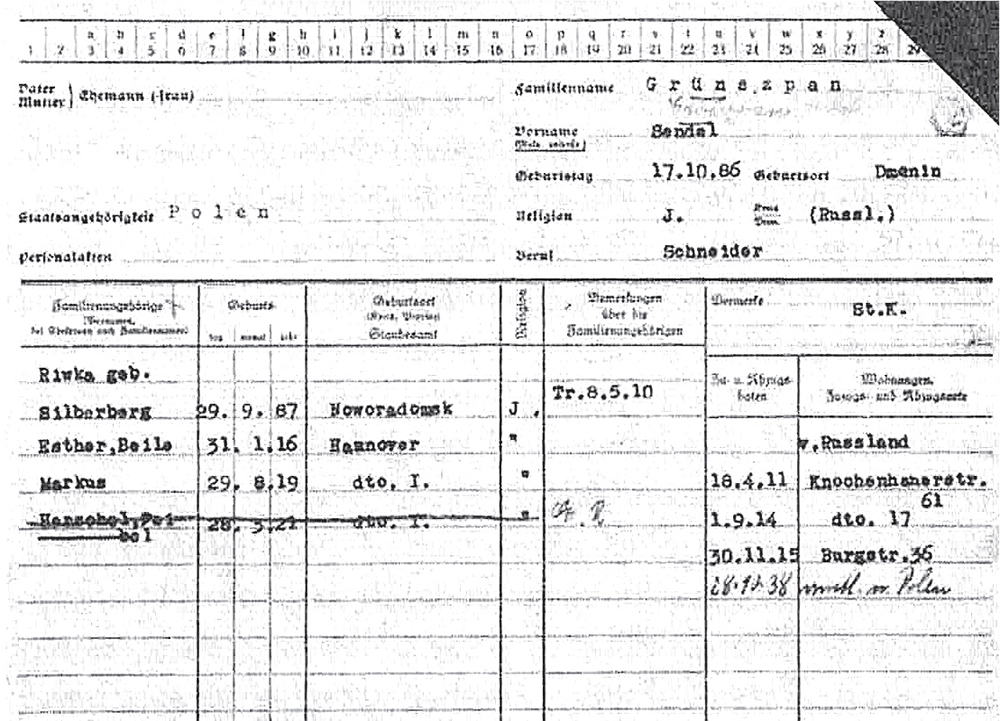 a b c d e f g h i j k l m n o p q r s t u v w x y z
1 2 3 4 5 6 7 8 9 10 11 12 13 14 15 16 17 18 19 20 21 22 23 24 25 26 27 28 29
Vater
Mutter } Ehemann (-frau)
Familienname Grünszpan
Vorname Sendel
Geburtstag 17.10.86 Geburtsort Dmenin
Staatsangehörigkeit Polen
Religion J. Kreis (Russl.)
Personalakten
Beruf Schneider
Familienangehörige Geburts- Geburtsort Religion Bemerkungen Vermerke St.K.
(Vornamen, (Kreis, Provinz) über die
bei Ehefrauen auch Familiennamen) Standesamt Familienangehörigen
tag monat jahr
Zu- u. Abzugs- Wohnungen,
daten Zuzugs- und Abzugsorte
Riwka geb.
Silberberg 29. 9. 87 Noworadomsk J. Tr.8.5.10
Esther,Beile 31. 1.16 Hannover " v.Russland
Markus 29. 8.19 dto. I. " 18.4.11 Knochenhauerstr.
61
Henschel,Fei- 28. 3.21 dto. I. " 1.9.14 dto. 17
bel
30.11.15 Burgstr.36
28.10.38 n. Polen